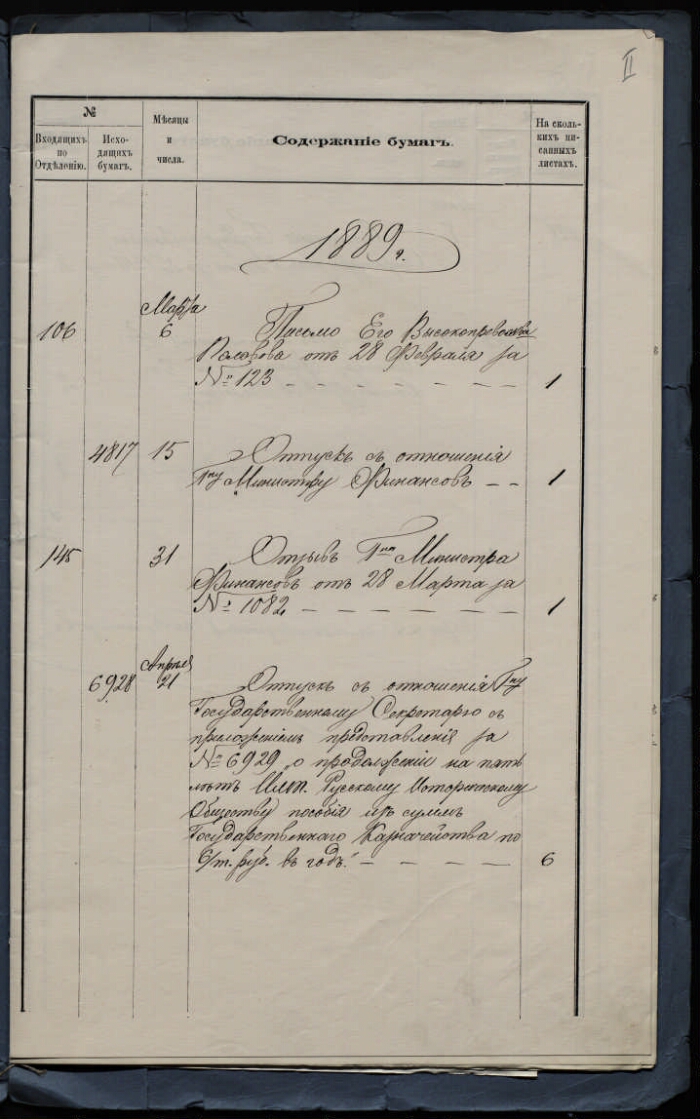 II
№
Входящихъ
по
Отдѣленію.
Исхо-
дящихъ
бумагъ.
Мѣсяцы
и
числа.
Содержаніе бумагъ.
На сколь-
кихъ пи-
санныхъ
листахъ.
1889 г.
Марта
106 6 Письмо Его Высокопревосход
Половцова отъ 28 Февраля за
№ 123 – – – – – – 1
4817 15 Отпускъ съ отношенія
Гну Министру Финансовъ – – 1
145 31 Отзывъ Гна Министра
Финансовъ отъ 28 Марта за
№ 1082. – – – – – – 1
Апрѣля
6928 21 Отпускъ съ отношенія Гну
Государственному Секретарю съ
приложеніемъ представленія за
№ 6929 о продолженіи на пять
лѣтъ Имп. Русскому Историческому
Обществу пособія изъ суммъ
Государственнаго Казначейства по
6/т. руб. въ годъ. – – – – – 6